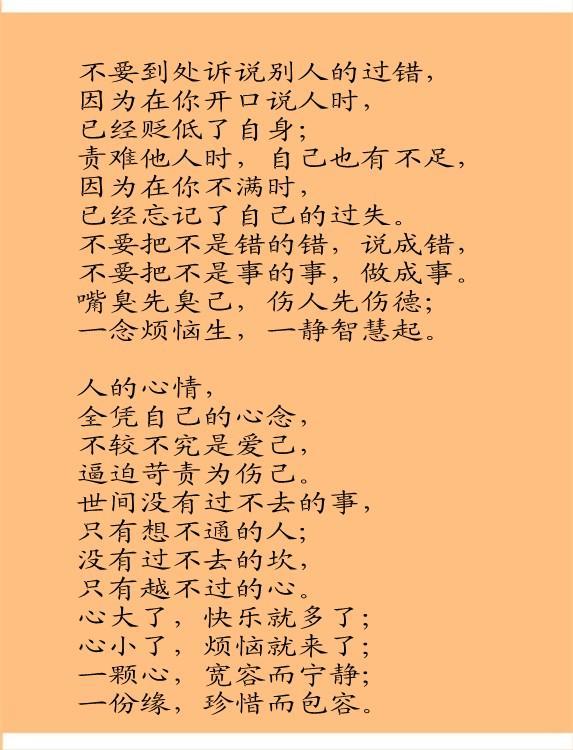 不要到处诉说别人的过错，
因为在你开口说人时，
已经贬低了自身；
责难他人时，自己也有不足，
因为在你不满时，
已经忘记了自己的过失。
不要把不是错的错，说成错，
不要把不是事的事，做成事。
嘴臭先臭己，伤人先伤德；
一念烦恼生，一静智慧起。
人的心情，
全凭自己的心念，
不较不究是爱己，
逼迫苛责为伤己。
世间没有过不去的事，
只有想不通的人；
没有过不去的坎，
只有越不过的心。
心大了，快乐就多了；
心小了，烦恼就来了；
一颗心，宽容而宁静；
一份缘，珍惜而包容。